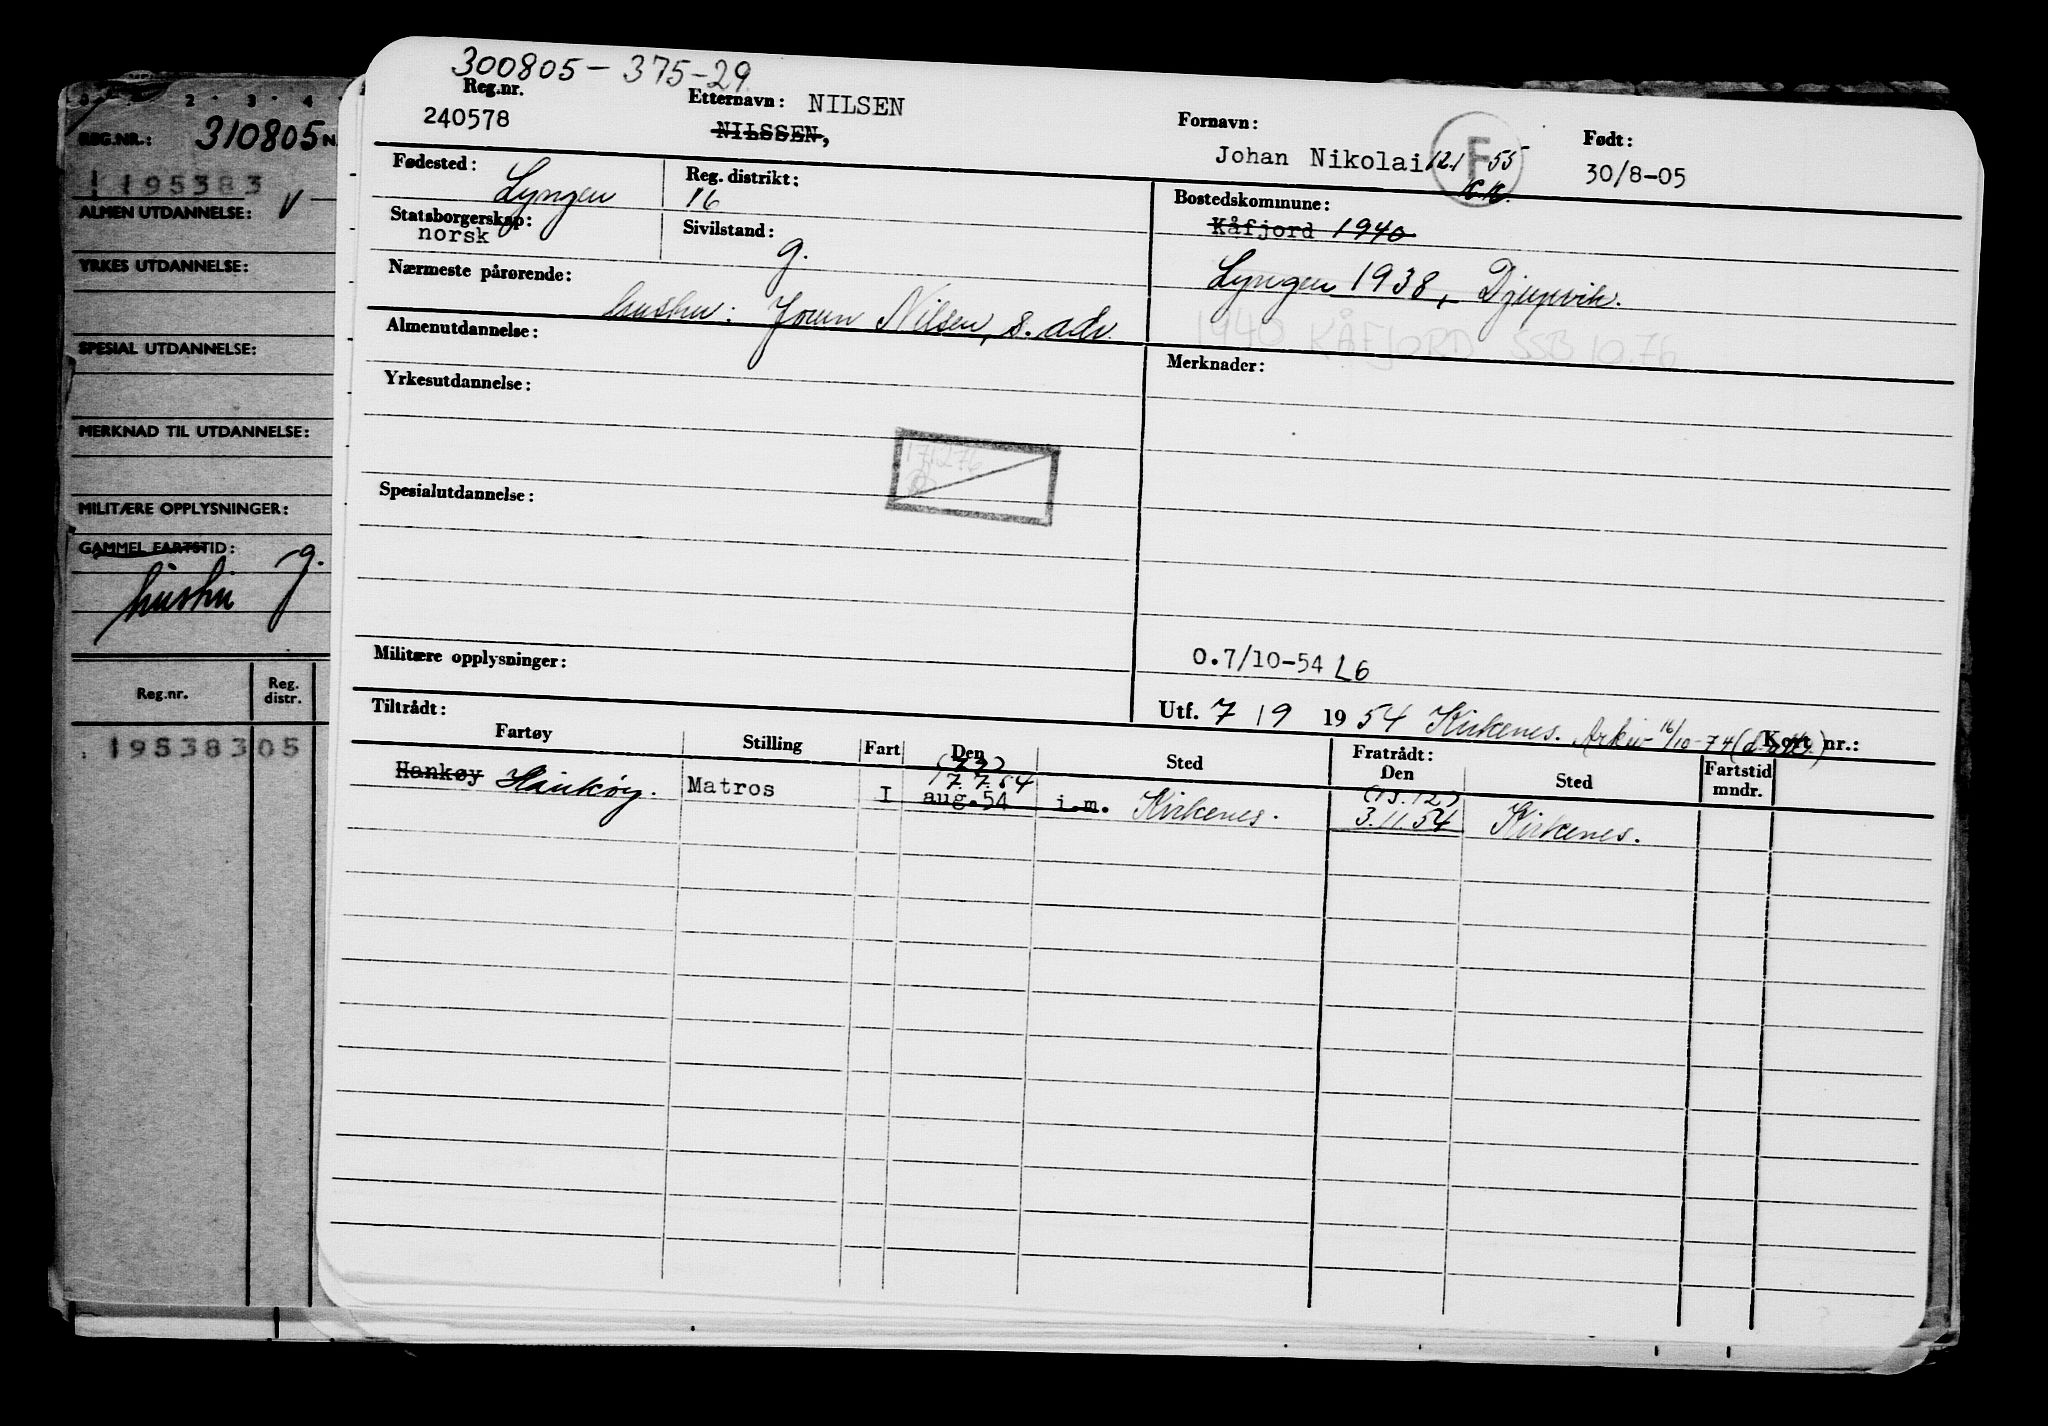 0 1 2 3 4
REG.NR.: 310805 N.
1195383
ALMEN UTDANNELSE: V
YRKES UTDANNELSE:
SPESIAL UTDANNELSE:
MERKNAD TIL UTDANNELSE:
MILITÆRE OPPLYSNINGER:
GAMMEL FARTSTID:
hustru g.
Reg.nr. Reg. distr.
195383 05
300805-375-29
Reg.nr. Etternavn: NILSEN Fornavn: Født:
240578 NILSSEN, Johan Nikolai 12.1 F 55 30/8-05
Fødested: Lyngen Reg. distrikt: 16 Bostedskommune:
Statsborgerskap: norsk Sivilstand: g. Kåfjord 1940
Nærmeste pårørende: Lyngen 1938, Djupvik.
hustru: Joren Nilsen, s. adr.
1940 KÅFJORD SSB 10.76
Almenutdannelse: Merknader:
Yrkesutdannelse:
171276
Spesialutdannelse:
Militære opplysninger: O.7/10-54 L6
Utf. 7/9 1954 Kirkenes. Arkiv 16/10-74 Kort nr.:
Tiltrådt: Fratrådt:
Fartøy Stilling Fart Den Sted Den Sted Fartstid mndr.
(22) (15.12)
17.7.54
Hankøy Hankøy. Matros I aug.54 i.m. Kirkenes. 3.11.54 Kirkenes.